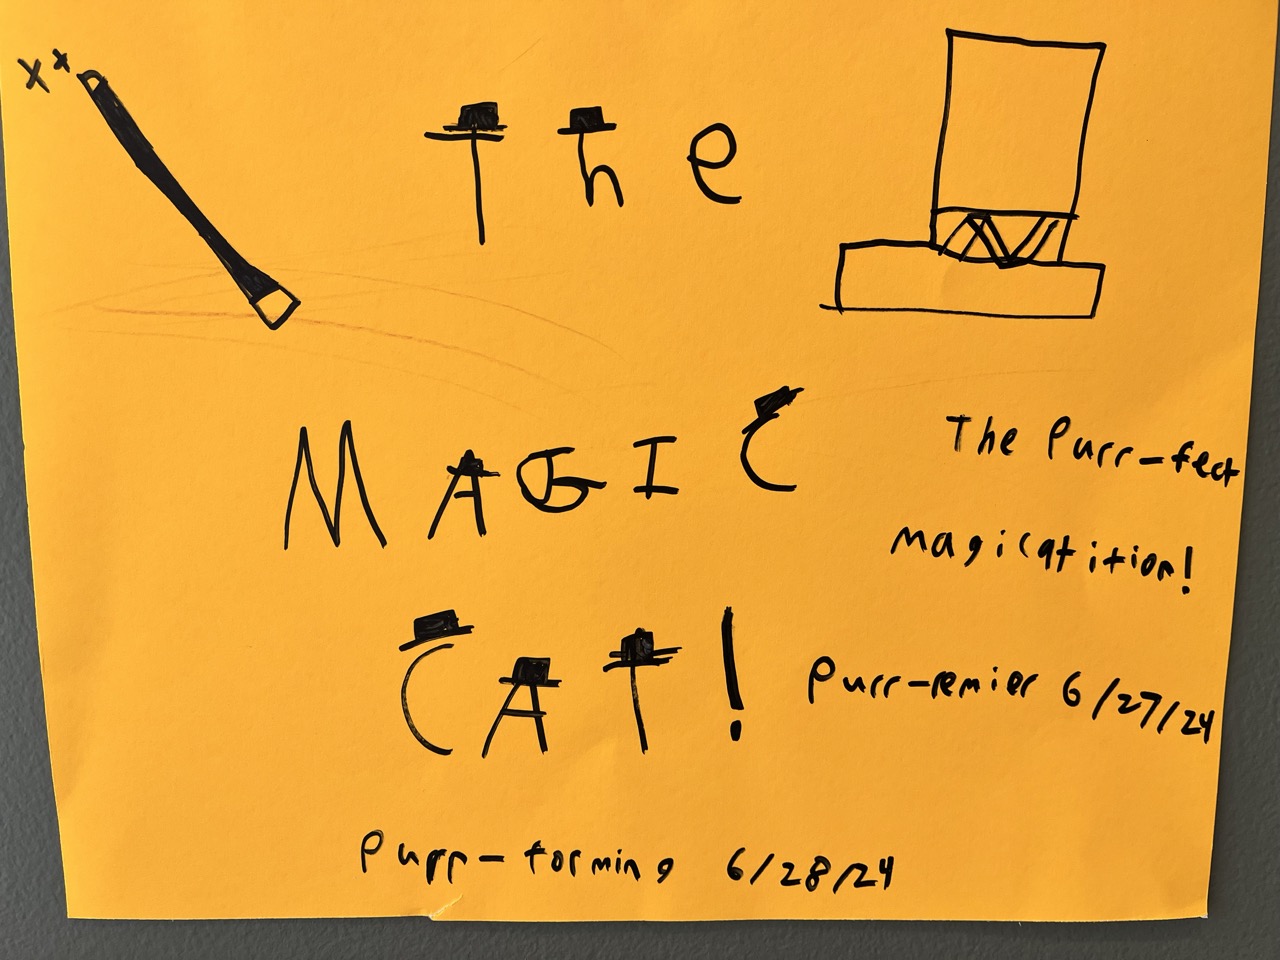 The
MAGIC
CAT!
The Purr-fect
magicatition!
Purr-remier 6/27/24
Purr-forming 6/28/24